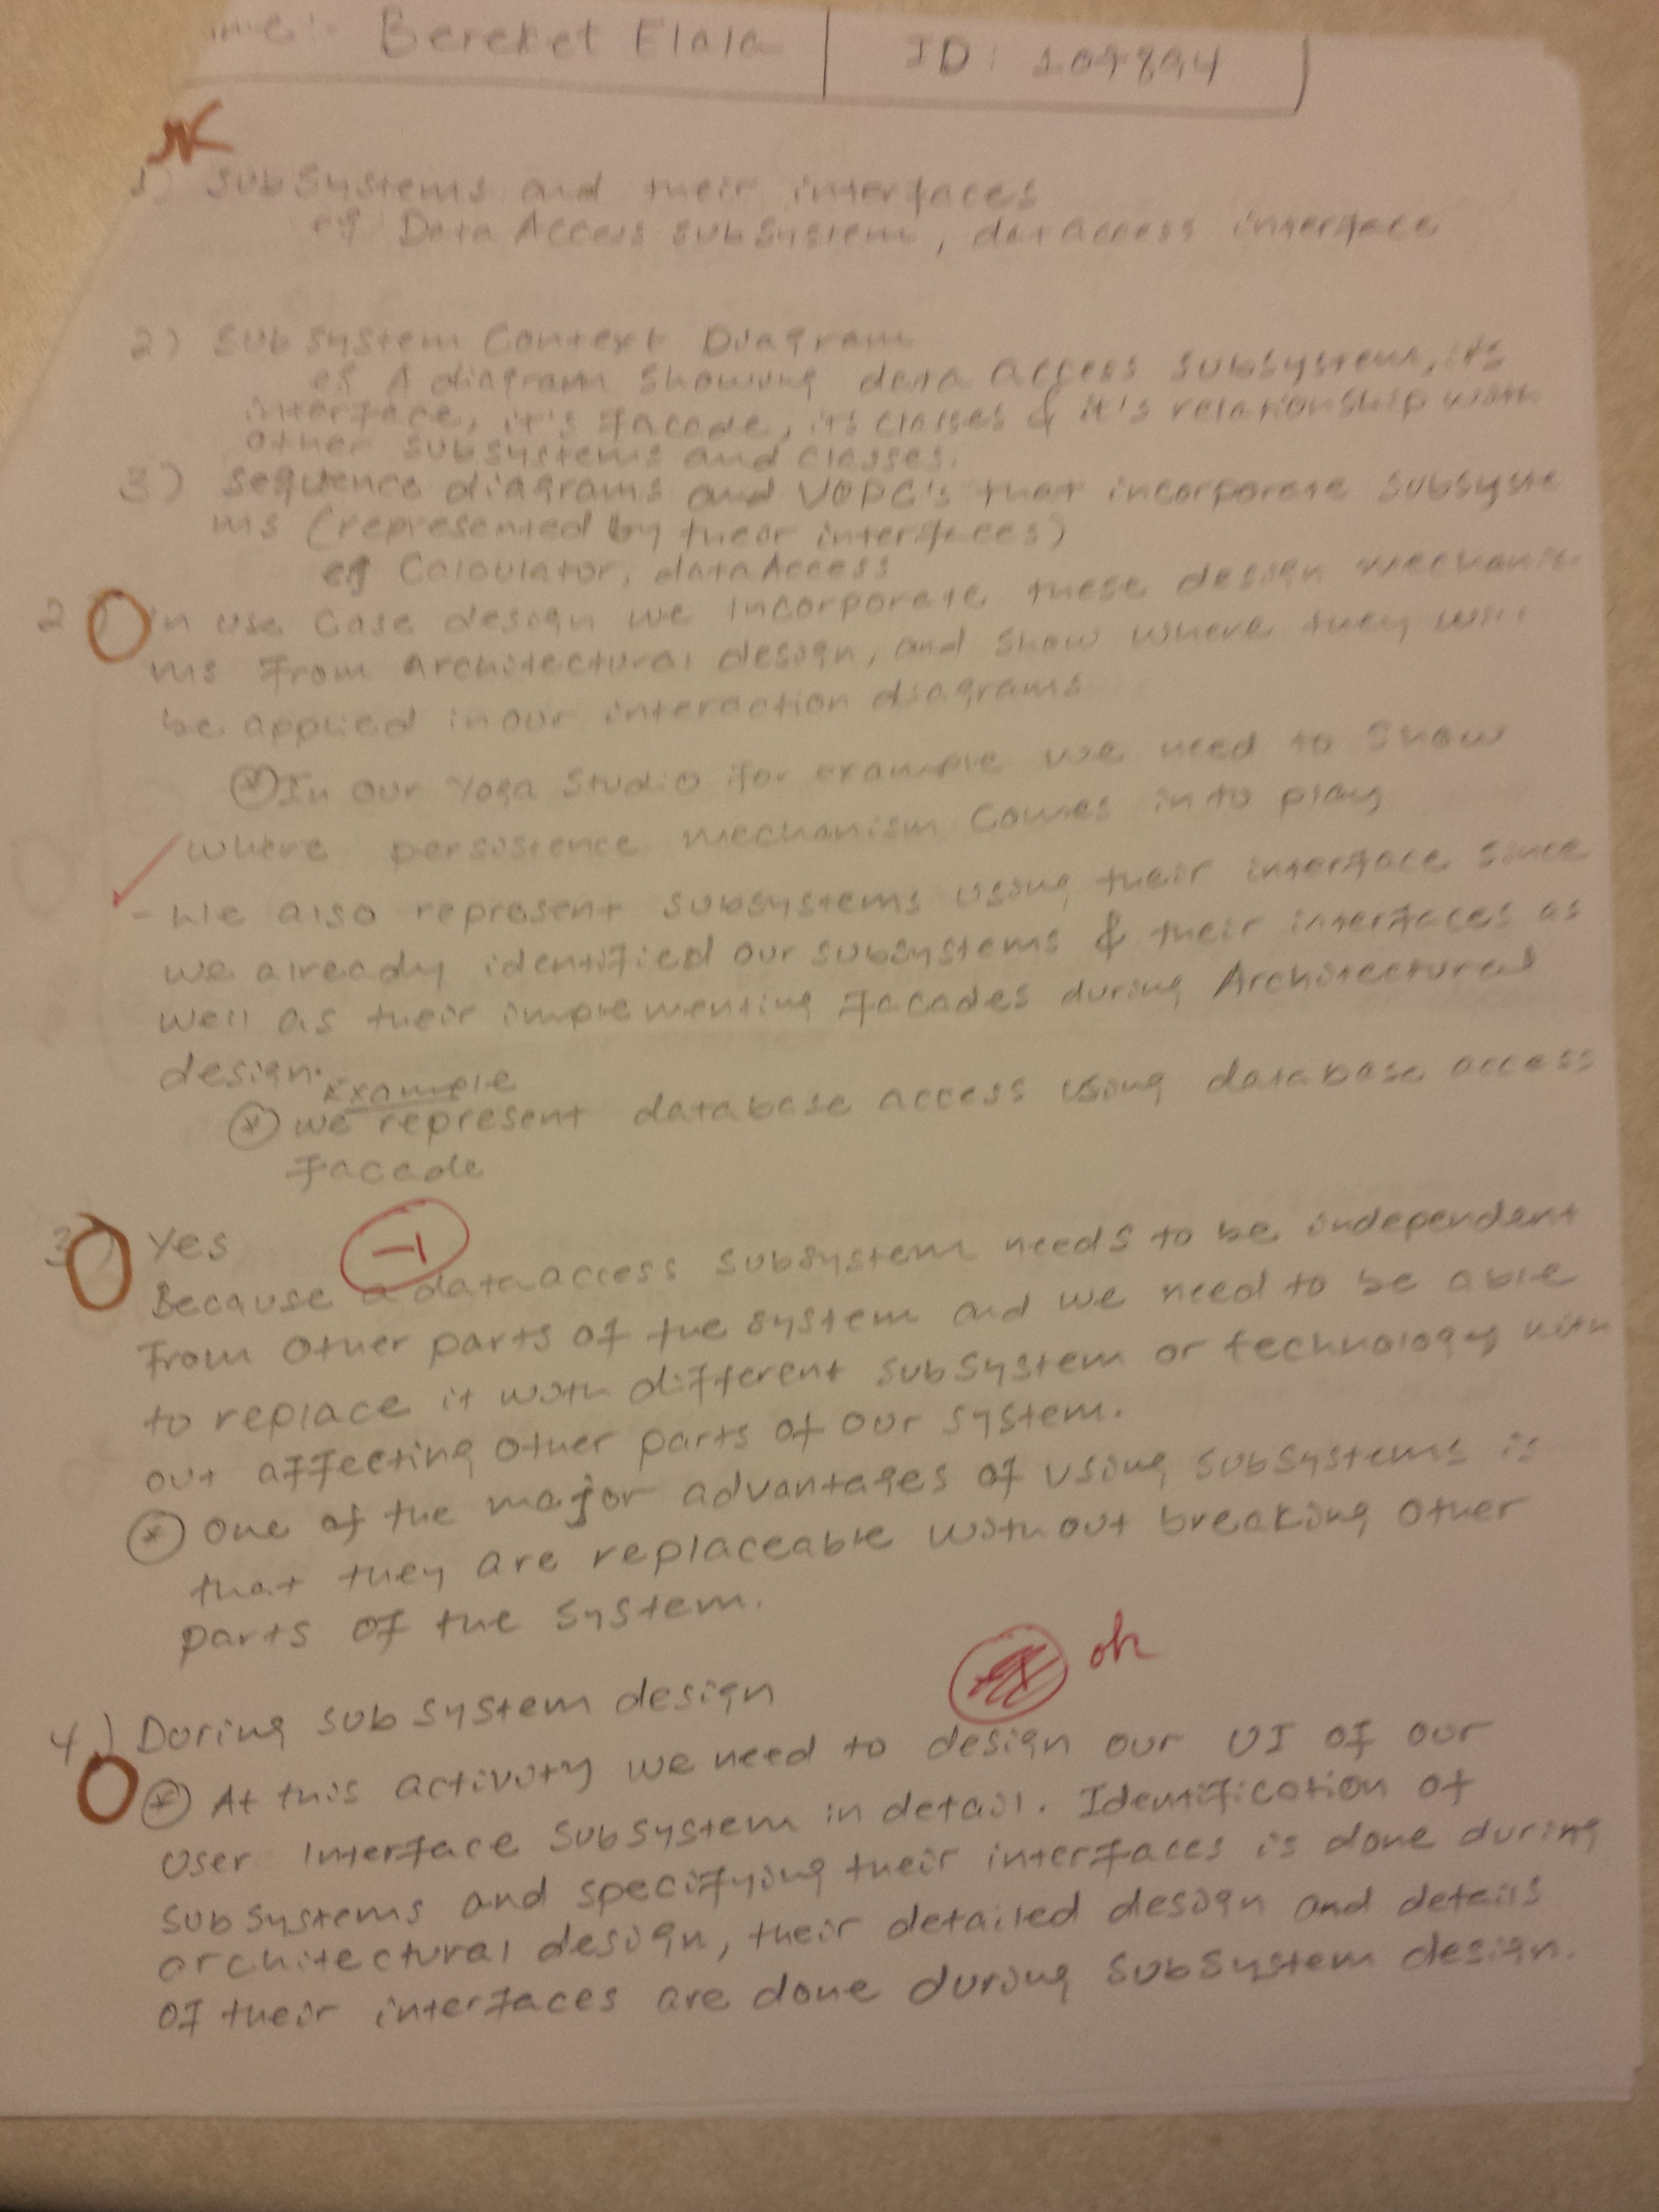 Bereket Elala | ID: 109894
1) Subsystems and their interfaces
eg Data Access subsystem, dataccess interface
2) Subsystem Context Diagram
eg A diagram showing data access subsystem, its
interface, it's facade, its classes & it's relationship with
other subsystems and classes.
3) Sequence diagrams and VOPC's that incorporate subsyste
ms (represented by their interfaces)
eg Calculator, dataAccess
2 In use case design we incorporate these design mechanis
ms from architectural design, and show where they will
be applied in our interaction diagrams
* In our Yoga Studio for example we need to show
where persistence mechanism comes in to play
- We also represent subsystems using their interface since
we already identified our subsystems & their interfaces as
well as their implementing facades during Architectural
design.
Example
* we represent database access using database access
facade
3) Yes
-1
Because a dataaccess subsystem needs to be independent
from other parts of the system and we need to be able
to replace it with different subsystem or technology with
out affecting other parts of our system.
* One of the major advantages of using subsystems is
that they are replaceable without breaking other
parts of the system.
ok
4) During subsystem design
* At this activity we need to design our UI of our
User Interface subsystem in detail. Identification of
subsystems and specifying their interfaces is done during
architectural design, their detailed design and details
of their interfaces are done during subsystem design.